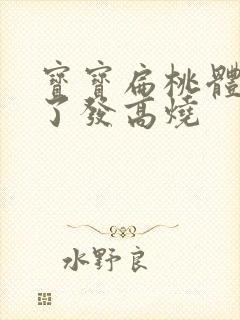 寶寶扁桃體
了發高燒
水野良